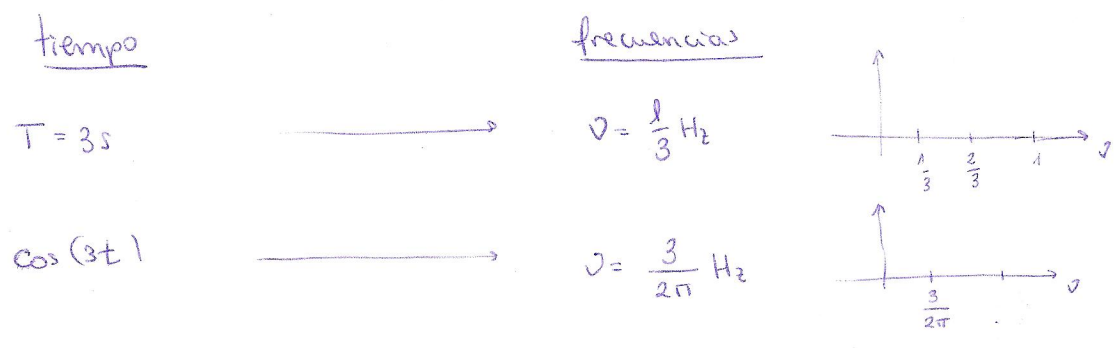 tiempo frecuencias
T = 3s ν = 1/3 Hz
1/3 2/3 1 ν
cos (3t) ν = 3/2π Hz
3/2π ν